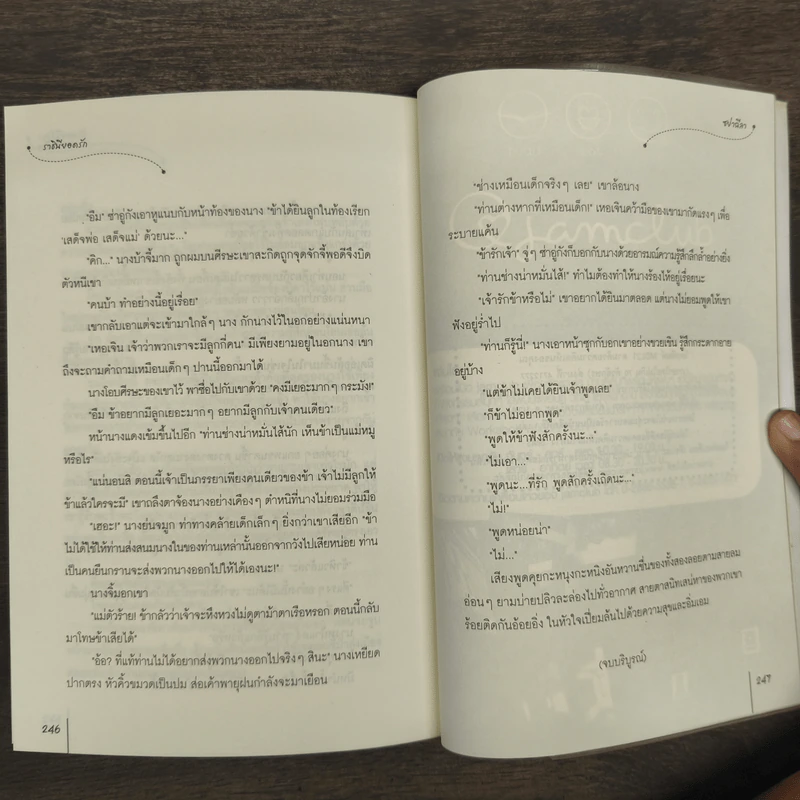 ราชินียอดรัก
"อืม" ซ่าอู่กังเอาหูแนบกับหน้าท้องของนาง "ข้าได้ยินลูกในท้องเรียก
'เสด็จพ่อ เสด็จแม่' ด้วยนะ..."
"คิก..." นางบ้าจี้มาก ถูกผมบนศีรษะเขาสะกิดถูกจุดจักจี้พอดีจึงบิด
ตัวหนีเขา
"คนบ้า ทำอย่างนี้อยู่เรื่อย"
เขากลับเอาแต่จะเข้ามาใกล้ๆ นาง กักนางไว้ในอกอย่างแน่นหนา
"เหอเจิน เจ้าว่าพวกเราจะมีลูกกี่คน" มีเพียงยามอยู่ในอกนาง เขา
ถึงจะถามคำถามเหมือนเด็กๆ ปานนี้ออกมาได้
นางโอบศีรษะของเขาไว้ พาซื่อไปกับเขาด้วย "คงมีเยอะมากๆ กระมัง!"
"อืม ข้าอยากมีลูกเยอะมากๆ อยากมีลูกกับเจ้าคนเดียว"
หน้านางแดงเข้มขึ้นไปอีก "ท่านช่างน่าหมั่นไส้นัก เห็นข้าเป็นแม่หมู
หรือไร"
"แน่นอนสิ ตอนนี้เจ้าเป็นภรรยาเพียงคนเดียวของข้า เจ้าไม่มีลูกให้
ข้าแล้วใครจะมี" เขาถลึงตาจ้องนางอย่างเคืองๆ ตำหนิที่นางไม่ยอมร่วมมือ
"เฮอะ!" นางย่นจมูก ท่าทางคล้ายเด็กเล็กๆ ยิ่งกว่าเขาเสียอีก "ข้า
ไม่ได้ใช้ให้ท่านส่งสนมนางในของท่านเหล่านั้นออกจากวังไปเสียหน่อย ท่าน
เป็นคนยืนกรานจะส่งพวกนางออกไปให้ได้เองนะ!"
นางจิ้มอกเขา
"แม่ตัวร้าย! ข้ากลัวว่าเจ้าจะหึงหวงไม่ดูตาม้าตาเรือหรอก ตอนนี้กลับ
มาโทษข้าเสียได้"
"อ้อ? ที่แท้ท่านไม่ได้อยากส่งพวกนางออกไปจริงๆ สินะ" นางเหยียด
ปากตรง หัวคิ้วขมวดเป็นปม ส่อเค้าพายุฝนกำลังจะมาเยือน
246
"ช่างเหมือนเด็กจริงๆ เลย" เขาล้อนาง
"ท่านต่างหากที่เหมือนเด็ก!" เหอเจินคว้ามือของเขามากัดแรงๆ เพื่อ
ระบายแค้น
"ข้ารักเจ้า" จู่ๆ ซ่าอู่กังก็บอกกับนางด้วยอารมณ์ความรู้สึกลึกล้ำอย่างยิ่ง
"ท่านช่างน่าหมั่นไส้!" ทำไมต้องทำให้นางร้องไห้อยู่เรื่อยนะ
"เจ้ารักข้าหรือไม่" เขาอยากได้ยินมาตลอด แต่นางไม่ยอมพูดให้เขา
ฟังอยู่ร่ำไป
"ท่านก็รู้นี่!" นางเอาหน้าซุกกับอกเขาอย่างขวยเขิน รู้สึกกระดากอาย
อยู่บ้าง
"แต่ข้าไม่เคยได้ยินเจ้าพูดเลย"
"ก็ข้าไม่อยากพูด"
"พูดให้ข้าฟังสักครั้งนะ..."
"ไม่เอา..."
"พูดนะ...ที่รัก พูดสักครั้งเถิดนะ..."
"ไม่!"
"พูดหน่อยน่า"
"ไม่..."
เสียงพูดคุยกะหนุงกะหนิงอันหวานชื่นของทั้งสองลอยตามสายลม
อ่อนๆ ยามบ่ายปลิวละล่องไปทั่วอากาศ สายตาสนิทเสน่หาของพวกเขา
ร้อยติดกันอ้อยอิ่ง ในหัวใจเปี่ยมล้นไปด้วยความสุขและอิ่มเอม
(จบบริบูรณ์)
247